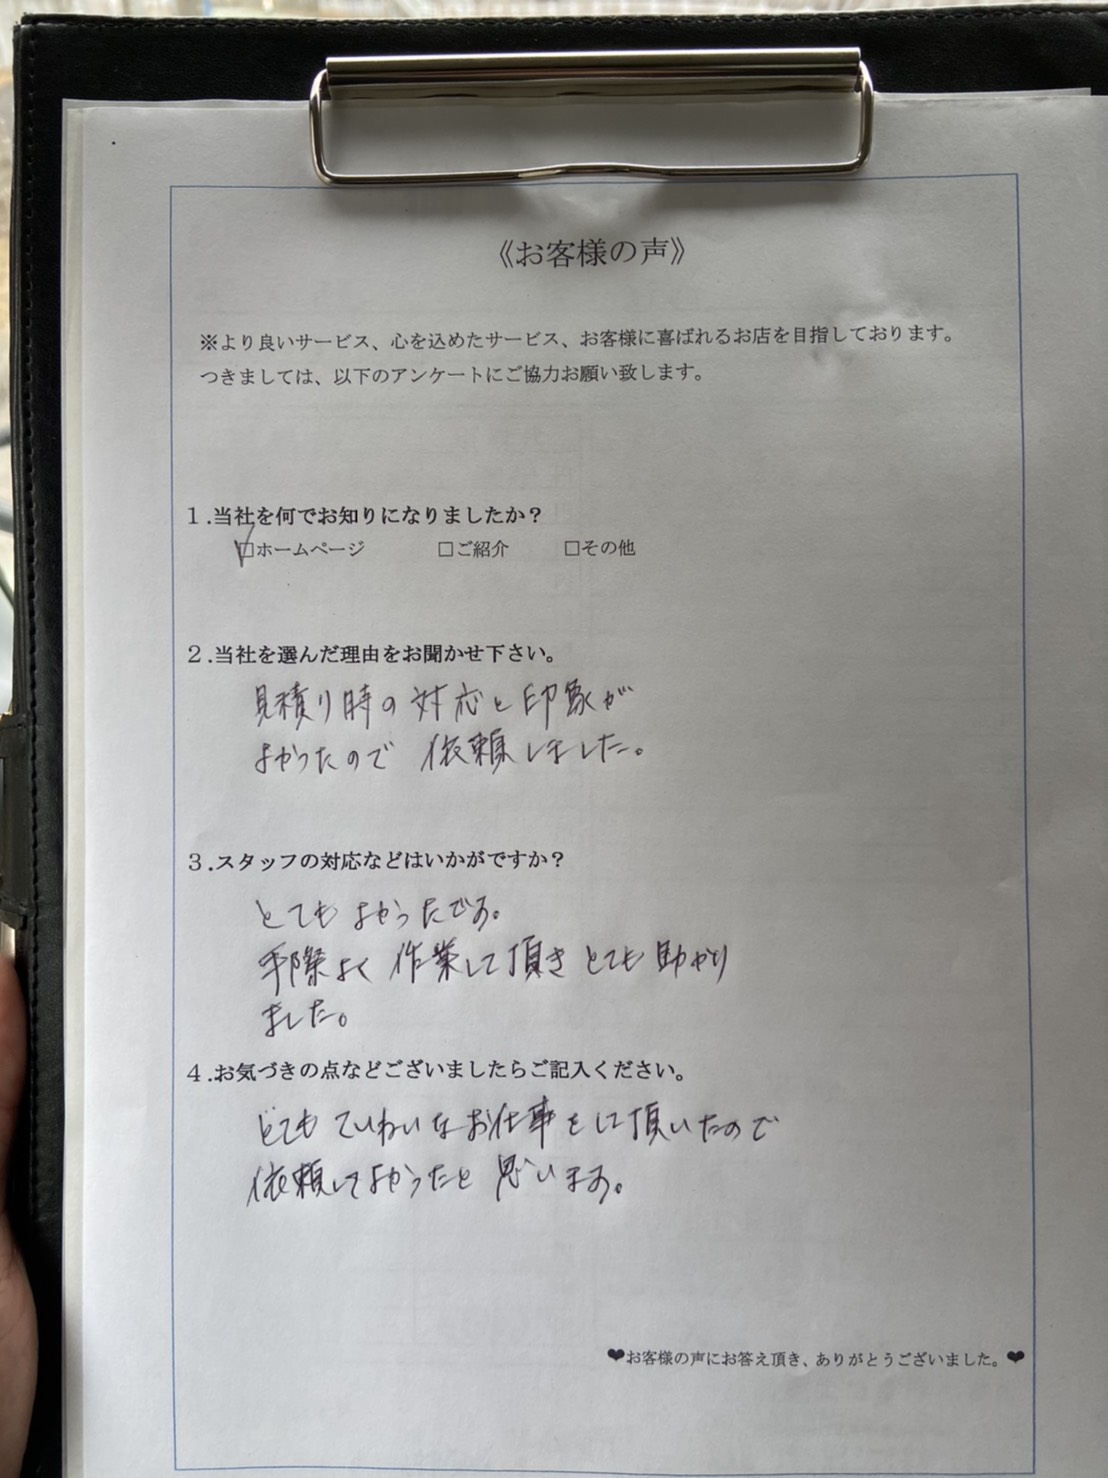 《お客様の声》
※より良いサービス、心を込めたサービス、お客様に喜ばれるお店を目指しております。
つきましては、以下のアンケートにご協力お願い致します。
１.当社を何でお知りになりましたか？
☑ホームページ □ご紹介 □その他
２.当社を選んだ理由をお聞かせ下さい。
見積り時の対応と印象が
よかったので依頼しました。
３.スタッフの対応などはいかがですか？
とてもよかったです。
手際よく作業して頂きとても助かり
ました。
４.お気づきの点などございましたらご記入ください。
とてもていねいなお仕事をして頂いたので
依頼してよかったと思います。
❤お客様の声にお答え頂き、ありがとうございました。❤